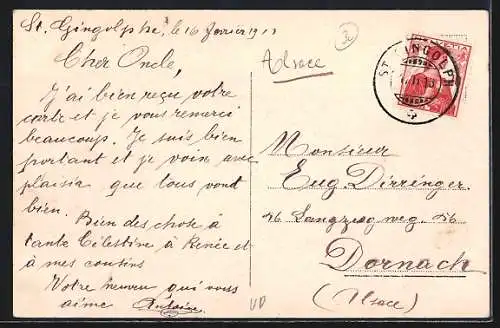 St. Gingolphe, le 16 fevrier 1911
Cher Oncle,
J'ai bien reçu votre
carte et je vous remerci
beaucoup. Je suis bien
portant et je voix avec
plaisir que tous vont
bien.
Bien des chose à
tante Célestine à Renée et
à mes cousins
Votre neveu qui vous
aime Antoine
Alsace
HELVETIA
ST. GINGOLPH
Monsieur
Eug. Dirringer
46 Langzugweg 46
Dornach
(Alsace)